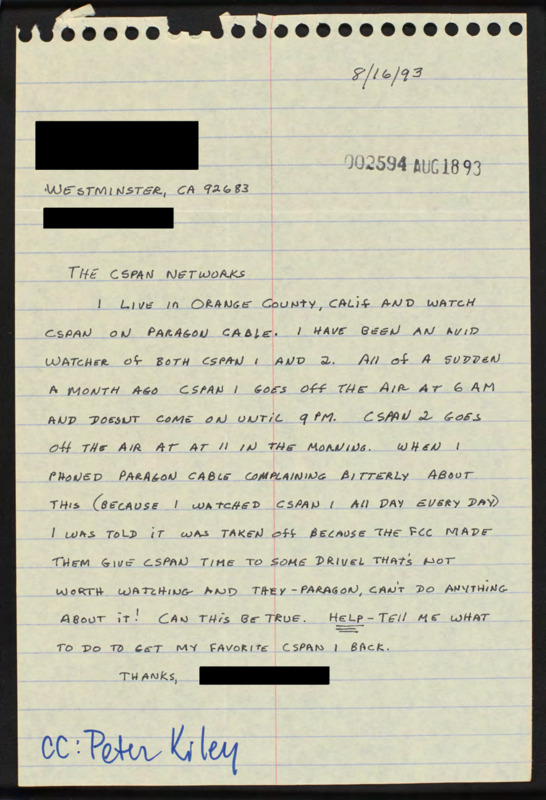 8/16/93
002594 AUG 18 93
WESTMINSTER, CA 92683
THE CSPAN NETWORKS
I LIVE in ORANGE COUNTY, CALif AND WATCH
CSPAN ON PARAGON CABLE. I HAVE BEEN AN AVID
WATCHER of BOTH CSPAN 1 AND 2. All of A SUDDEN
A MONTH AGO CSPAN 1 GOES OFF THE AIR AT 6 AM
AND DOESNT COME ON UNTIL 9 PM. CSPAN 2 GOES
off THE AIR AT AT 11 IN THE MORNING. WHEN I
PHONED PARAGON CABLE COMPLAINING BITTERLY ABOUT
THIS (BECAUSE I WATCHED CSPAN 1 All DAY EVERY DAY)
I WAS TOLD iT WAS TAKEN off BECAUSE THE FCC MADE
THEM GIVE CSPAN TIME TO SOME DRIVEL THAT'S NOT
WORTH WATCHING AND THEY-PARAGON, CAN'T DO ANYTHING
ABOUT iT! CAN THis BE TRUE. HELP-TEll ME WHAT
TO DO TO GET MY FAVORITE CSPAN 1 BACK.
THANKS,
CC: Peter Kiley